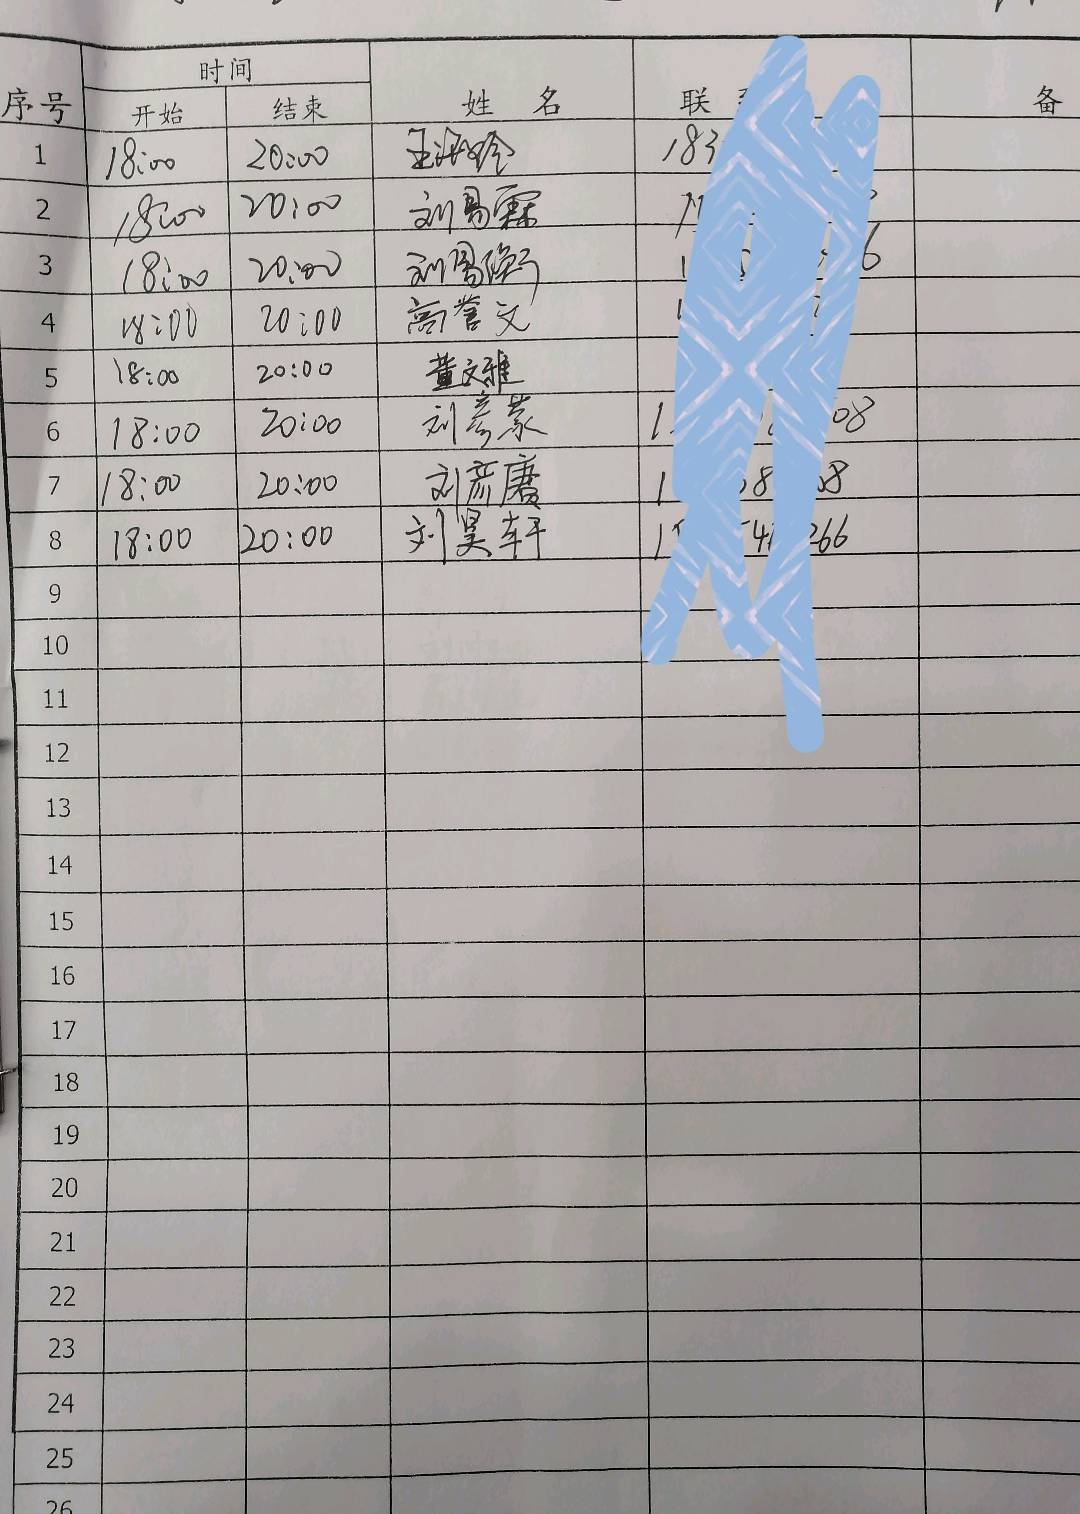 时间
序号 开始 结束 姓 名 联 备
1 18:00 20:00 183
2 18:00 20:00 刘易霖
3 18:00 20:00 刘易 6
4 18:00 20:00 高誉文
5 18:00 20:00 黄文雅
6 18:00 20:00 刘彦蒙 1 08
7 18:00 20:00 刘彦唐 1 8 8
8 18:00 20:00 刘昊轩 1 266
9
10
11
12
13
14
15
16
17
18
19
20
21
22
23
24
25
26